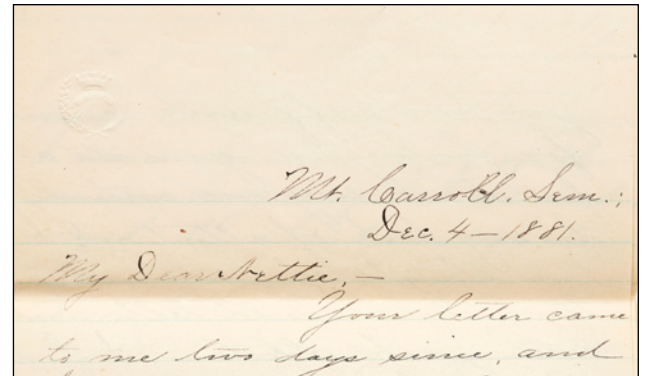 Mt. Carroll. Sem.;
Dec. 4 – 1881.
My Dear Nettie, –
Your letter came
to me two days since, and